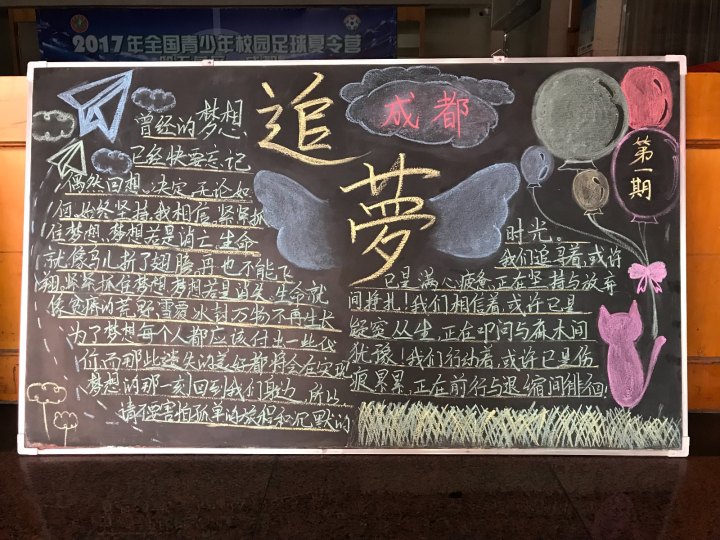 2017年全国青少年校园足球夏令营
追
夢
成都
第一期
曾经的梦想
已经快要忘记
偶然回想,决定,无论如
何,始终坚持,我相信,紧紧抓
住梦想,梦想若是消亡,生命
就像鸟儿折了翅膀,再也不能飞
翔,紧紧抓住梦想,梦想若是消失,生命就
像贫瘠的荒野,雪覆冰封,万物不再生长
为了梦想每个人都应该付出一些代
价而那些迷失的美好都将会在实现
梦想的那一刻回到我们身边,所以
请不要害怕孤单的旅程和沉默的
时光。
我们追寻着,或许
已是满心疲惫,正在坚持与放弃
间挣扎!我们相信着,或许已是
疑窦丛生,正在叩问与麻木间
犹豫!我们行动着,或许已是伤
痕累累,正在前行与退缩间徘徊!